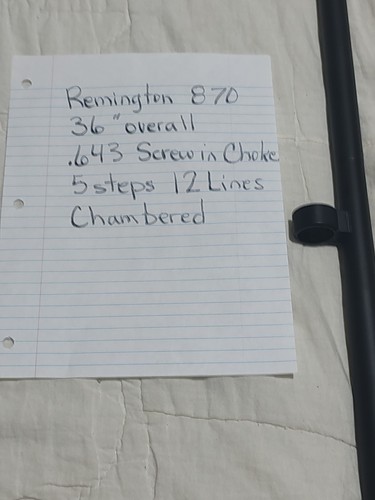 Remington 870
36" overall
.643 Screw in Choke
5 steps 12 Lines
Chambered